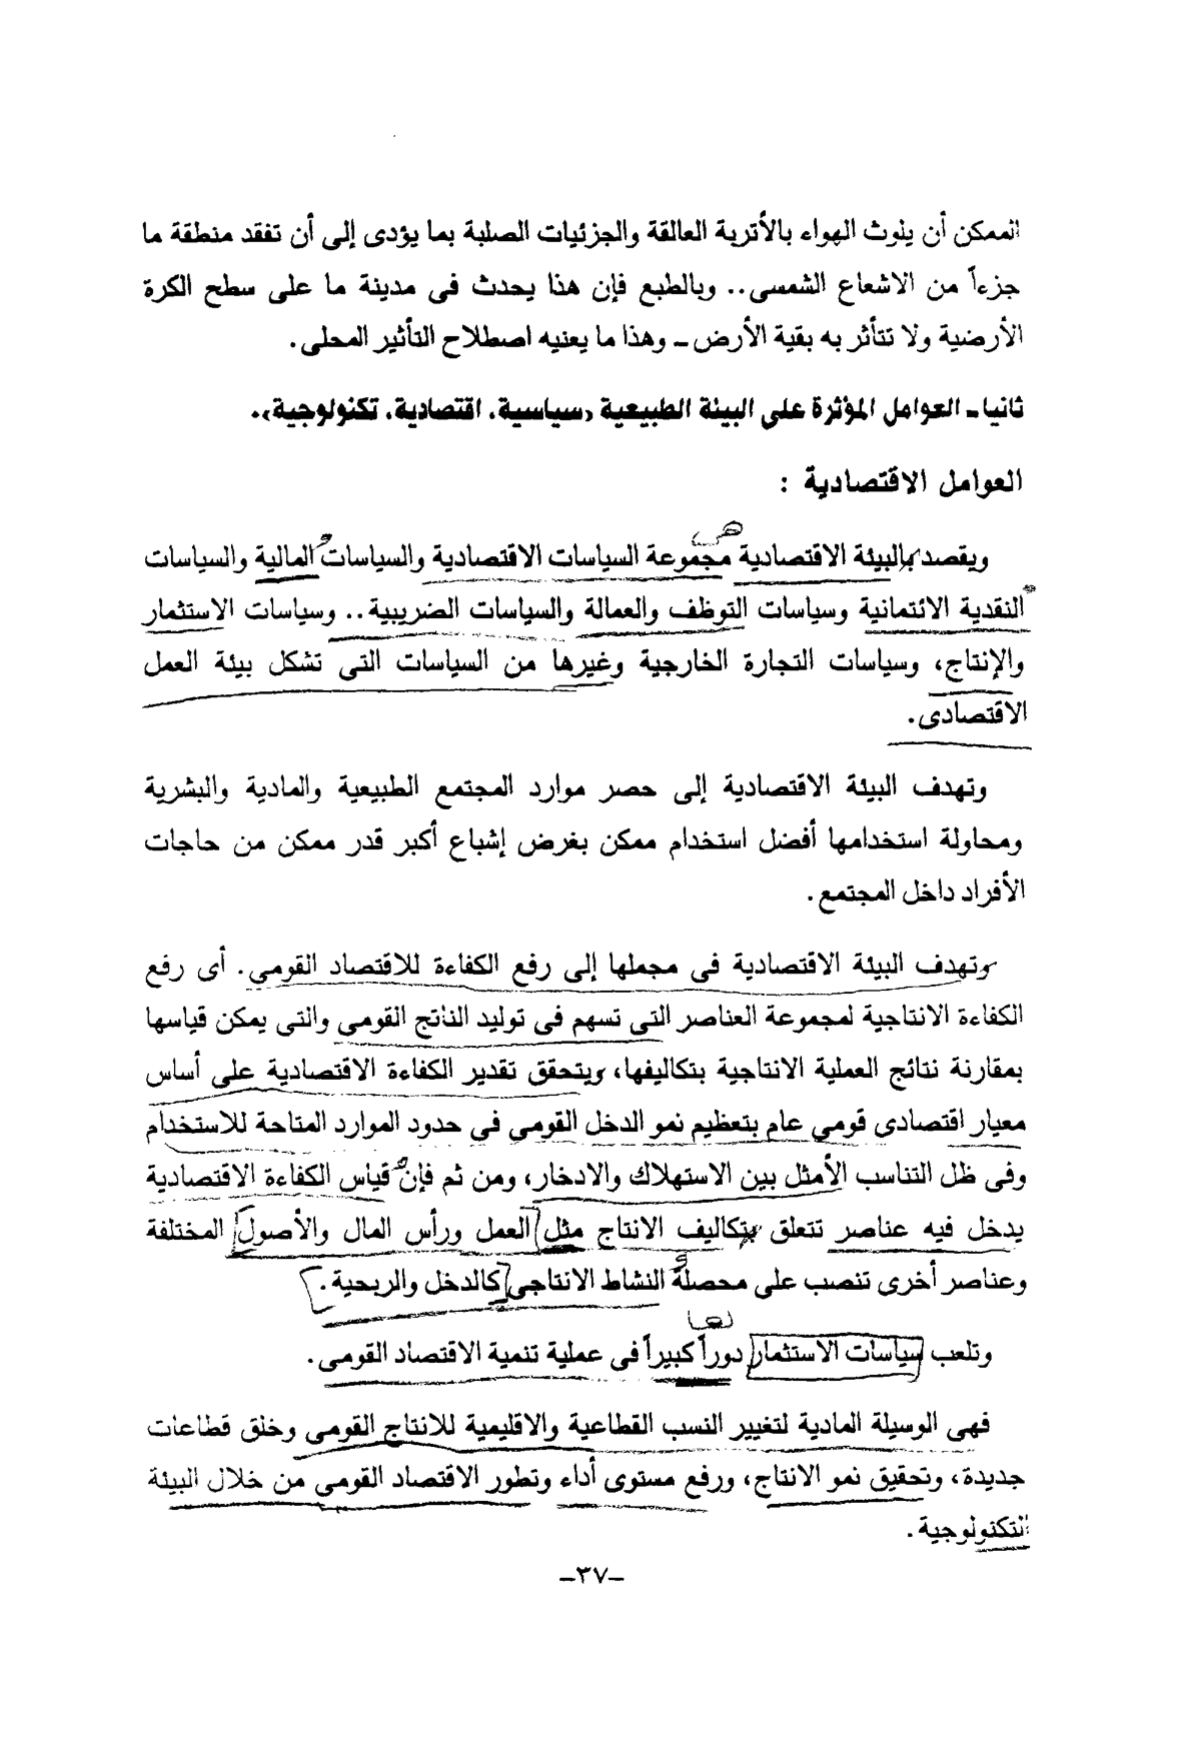 الممكن أن يلوث الهواء بالأتربة العالقة والجزئيات الصلبة بما يؤدى إلى أن تفقد منطقة ما
جزءاً من الاشعاع الشمسى.. وبالطبع فإن هذا يحدث فى مدينة ما على سطح الكرة
الأرضية ولا تتأثر به بقية الأرض ـ وهذا ما يعنيه اصطلاح التأثير المحلى.
ثانيا ـ العوامل المؤثرة على البيئة الطبيعية (سياسية، اقتصادية، تكنولوجية).
العوامل الاقتصادية :
ويقصد بالبيئة الاقتصادية مجموعة السياسات الاقتصادية والسياسات المالية والسياسات
النقدية الائتمانية وسياسات التوظف والعمالة والسياسات الضريبية.. وسياسات الاستثمار
والإنتاج، وسياسات التجارة الخارجية وغيرها من السياسات التى تشكل بيئة العمل
الاقتصادى.
وتهدف البيئة الاقتصادية إلى حصر موارد المجتمع الطبيعية والمادية والبشرية
ومحاولة استخدامها أفضل استخدام ممكن بغرض إشباع أكبر قدر ممكن من حاجات
الأفراد داخل المجتمع.
وتهدف البيئة الاقتصادية فى مجملها إلى رفع الكفاءة للاقتصاد القومى. أى رفع
الكفاءة الانتاجية لمجموعة العناصر التى تسهم فى توليد الناتج القومى والتى يمكن قياسها
بمقارنة نتائج العملية الانتاجية بتكاليفها، ويتحقق تقدير الكفاءة الاقتصادية على أساس
معيار اقتصادى قومى عام بتعظيم نمو الدخل القومى فى حدود الموارد المتاحة للاستخدام
وفى ظل التناسب الأمثل بين الاستهلاك والادخار، ومن ثم فإن قياس الكفاءة الاقتصادية
يدخل فيه عناصر تتعلق بتكاليف الانتاج مثل العمل ورأس المال والأصول المختلفة
وعناصر أخرى تنصب على محصلة النشاط الانتاجى كالدخل والربحية.
وتلعب سياسات الاستثمار دوراً كبيراً فى عملية تنمية الاقتصاد القومى.
فهى الوسيلة المادية لتغيير النسب القطاعية والاقليمية للانتاج القومى وخلق قطاعات
جديدة، وتحقيق نمو الانتاج، ورفع مستوى أداء وتطور الاقتصاد القومى من خلال البيئة
التكنولوجية.
–٣٧–